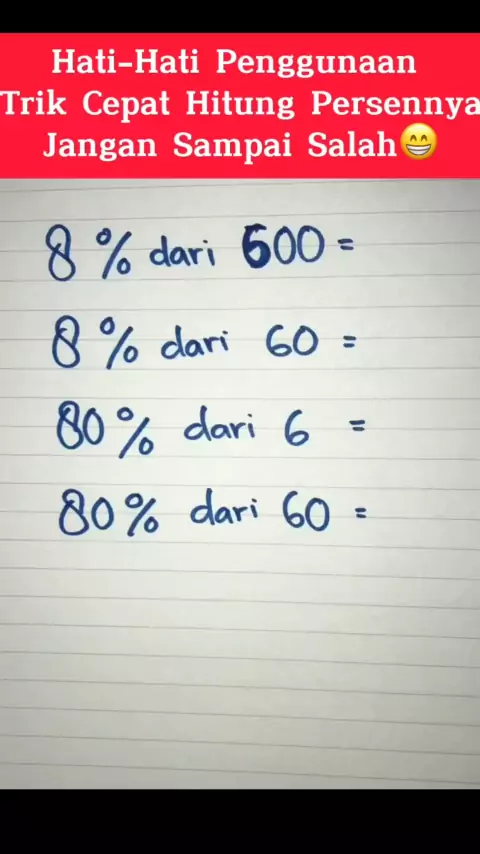 Hati-Hati Penggunaan
Trik Cepat Hitung Persennya
Jangan Sampai Salah😁
8 % dari 600 =
8 % dari 60 =
80 % dari 6 =
80 % dari 60 =